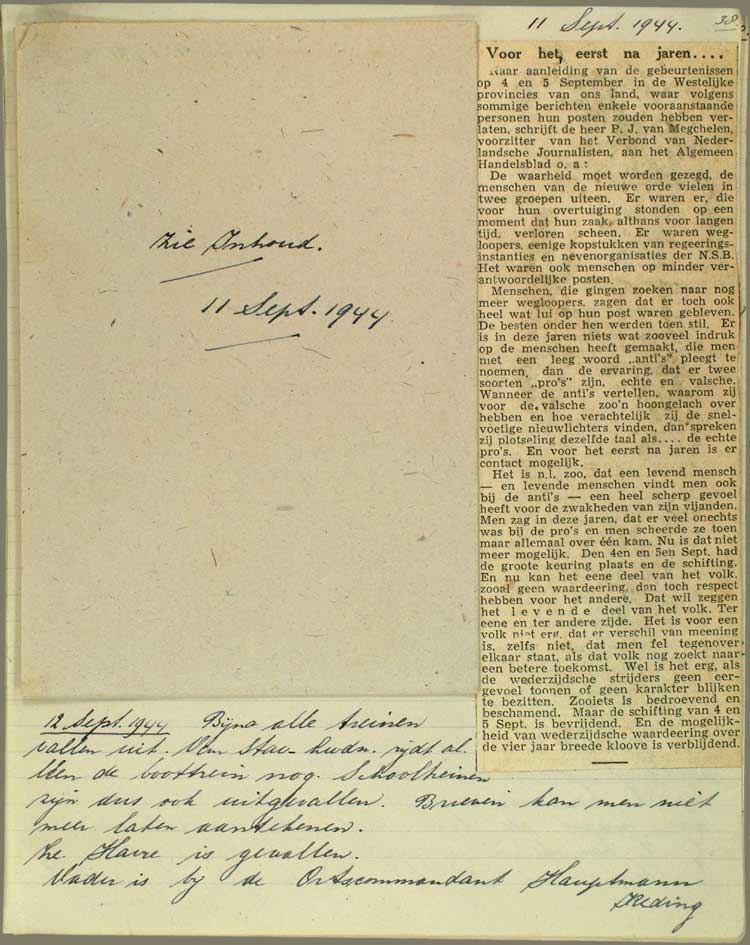 11 Sept. 1944.
38.
Voor het eerst na jaren....
Naar aanleiding van de gebeurtenissen
op 4 en 5 September in de Westelijke
provincies van ons land, waar volgens
sommige berichten enkele vooraanstaande
personen hun posten zouden hebben ver-
laten, schrijft de heer P. J. van Megchelen,
voorzitter van het Verbond van Neder-
landsche Journalisten, aan het Algemeen
Handelsblad o. a:
De waarheid moet worden gezegd, de
menschen van de nieuwe orde vielen in
twee groepen uiteen. Er waren er, die
voor hun overtuiging stonden op een
moment dat hun zaak, althans voor langen
tijd, verloren scheen. Er waren weg-
loopers, eenige kopstukken van regeerings-
instanties en nevenorganisaties der N.S.B.
Het waren ook menschen op minder ver-
antwoordelijke posten.
Menschen, die gingen zoeken naar nog
meer wegloopers, zagen dat er toch ook
heel wat lui op hun post waren gebleven.
De besten onder hen werden toen stil. Er
is in deze jaren niets wat zooveel indruk
op de menschen heeft gemaakt, die men
met een leeg woord „anti's" pleegt te
noemen, dan de ervaring, dat er twee
soorten „pro's" zijn, echte en valsche.
Wanneer de anti's vertellen, waarom zij
voor de valsche zoo'n hoongelach over
hebben en hoe verachtelijk zij de snel-
voetige nieuwlichters vinden, dan spreken
zij plotseling dezelfde taal als.... de echte
pro's. En voor het eerst na jaren is er
contact mogelijk.
Het is n.l. zoo, dat een levend mensch
— en levende menschen vindt men ook
bij de anti's — een heel scherp gevoel
heeft voor de zwakheden van zijn vijanden.
Men zag in deze jaren, dat er veel onechts
was bij de pro's en men scheerde ze toen
maar allemaal over één kam. Nu is dat niet
meer mogelijk. Den 4en en 5en Sept. had
de groote keuring plaats en de schifting.
En nu kan het eene deel van het volk,
zooal geen waardeering, dan toch respect
hebben voor het andere. Dat wil zeggen
het levende deel van het volk. Ter
eene en ter andere zijde. Het is voor een
volk niet erg, dat er verschil van meening
is, zelfs niet, dat men fel tegenover
elkaar staat, als dat volk nog zoekt naar
een betere toekomst. Wel is het erg, als
de wederzijdsche strijders geen eer-
gevoel toonen of geen karakter blijken
te bezitten. Zooiets is bedroevend en
beschamend. Maar de schifting van 4 en
5 Sept. is bevrijdend. En de mogelijk-
heid van wederzijdsche waardeering over
de vier jaar breede kloove is verblijdend.
zie Inhoud.
11 Sept. 1944
12 Sept. 1944 Bijna alle treinen
vallen uit. Van Stav- Lwdn. rijdt al-
léén de boottrein nog. Schooltreinen
zijn dus ook uitgevallen. Brieven kan men niet
meer laten aanteekenen.
Le Havre is gevallen.
Vader is bij de Ortscommandant Hauptmann